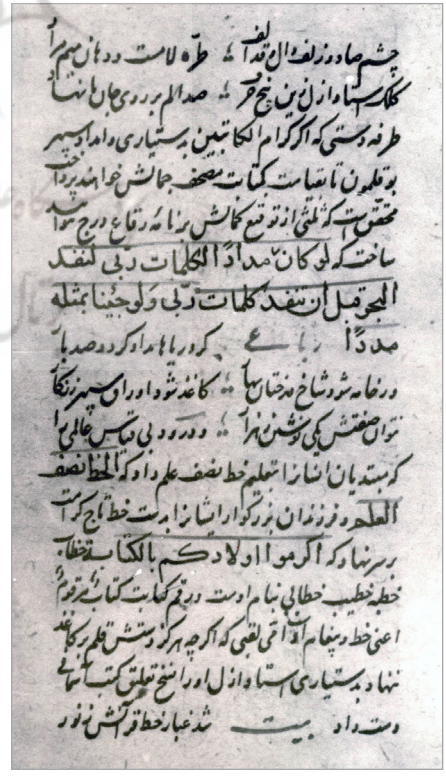 چشم صاد و زلف دال و قد الف ؛ طره لامست و دهان میم مرا
کلک استاد ازل زین پنج حرف ؛ صد الم بر روی جان ما نهاد
طرفه دستی که اگر کرام الکاتبین بدستیاری و امداد سپهر
بوقلمون تا قیامت کتابت مصحف جمالش خواهند پرداخت
محقق است که ثلثی از توقیع کمالش بر نامه رقاع درج نتوانند
ساخت که لو کان مدادًا لکلمات ربی لنفد
البحر قبل ان تنفد کلمات ربی ولو جئنا بمثله
مددًا رباعی گر دریاها مداد گردد صد بار
ور خامه شود شاخ درختان بهار ؛ کاغذ شود اوراق سپهر زنگار
نتوان صفتش یکی نوشتن ز هزار ؛ و درود بی قیاس عالی را
که مبتدیان انشا را بتعلیم خط نصف علم داد که الخط نصف
العلم و فرزندان بزرگوار ایشان را بدست خط تاج کرامت
بر سر نهاد که اکرموا اولادکم بالکتابة خطاب
خطبه خطیب خطابی بنام اوست و رقم کتابت کتاب مرقوم
اعنی خط و پیغام امی لقبی که اگرچه هرگز دستش قلم بر کاغذ
ننهاد بدستیاری استاد ازل او را نسخ تعلیق کتب آسمانی
دست داد بیت شد غبار خط قرآنش ز نور